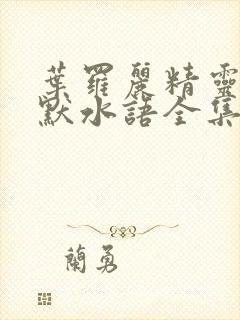 葉羅麗精靈
默水語全集
蘭勇